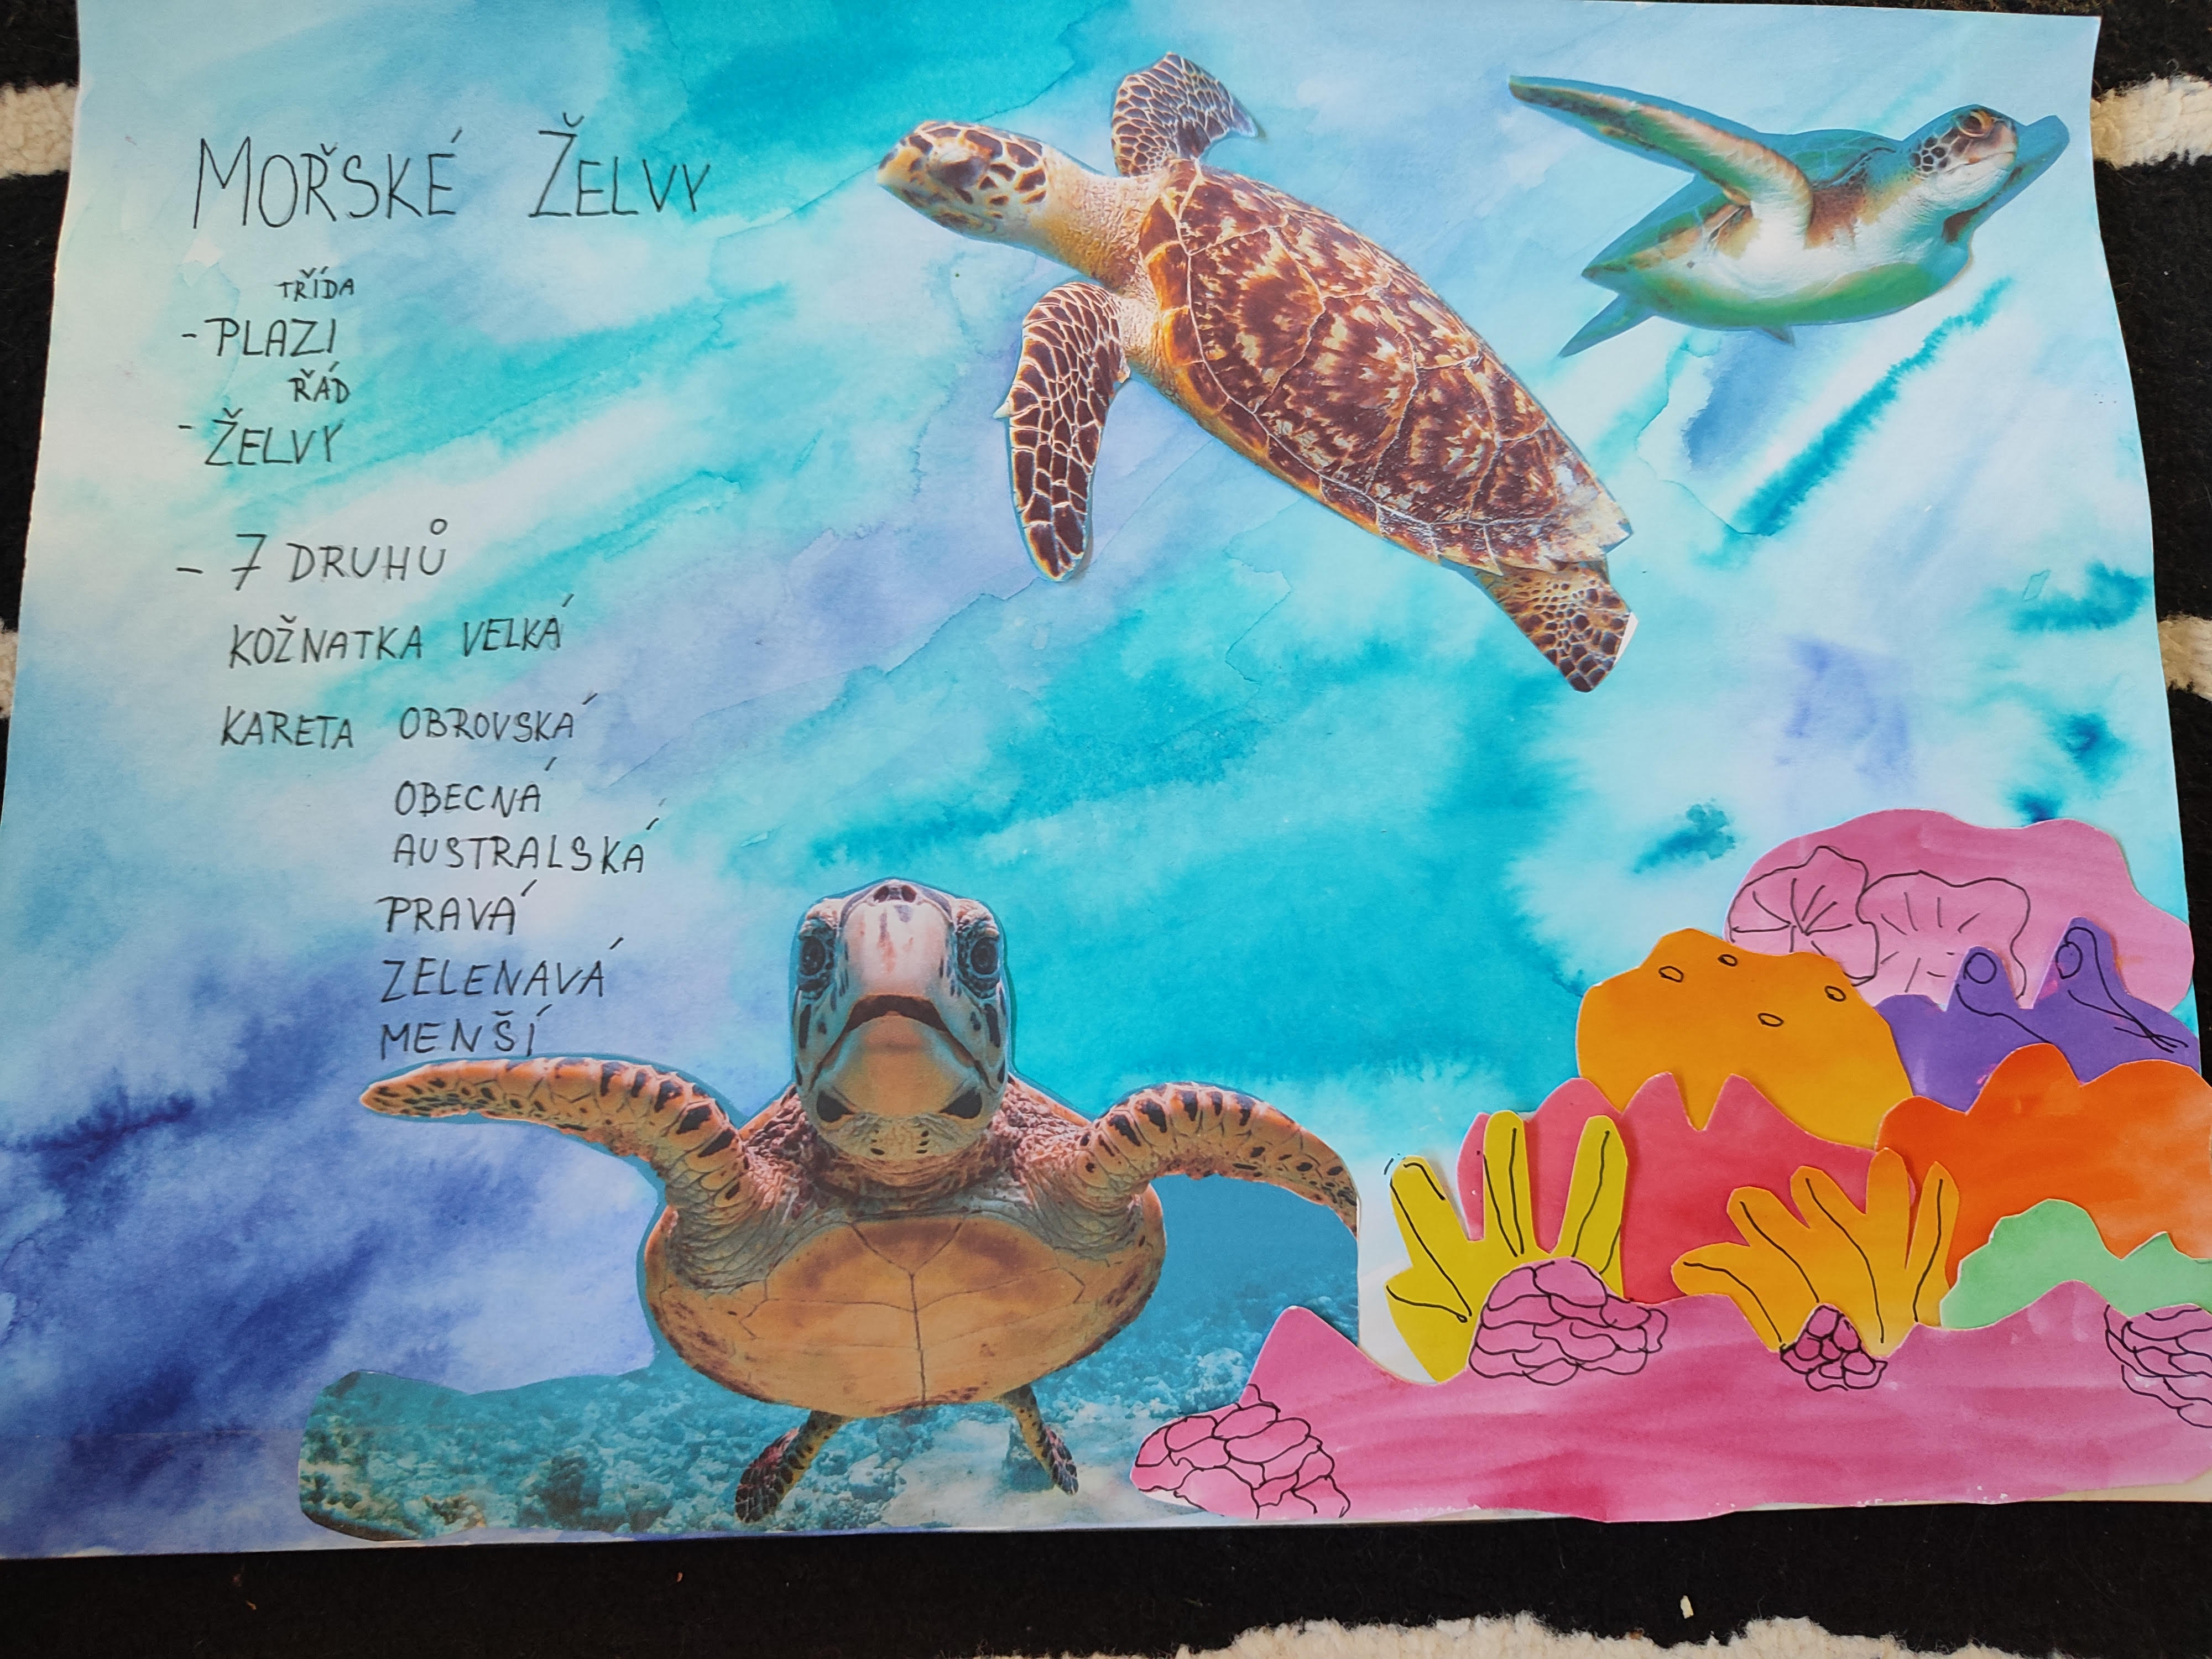 MOŘSKÉ ŽELVY
TŘÍDA
- PLAZI
ŘÁD
- ŽELVY
- 7 DRUHŮ
KOŽNATKA VELKÁ
KARETA OBROVSKÁ
OBECNÁ
AUSTRALSKÁ
PRAVÁ
ZELENAVÁ
MENŠÍ